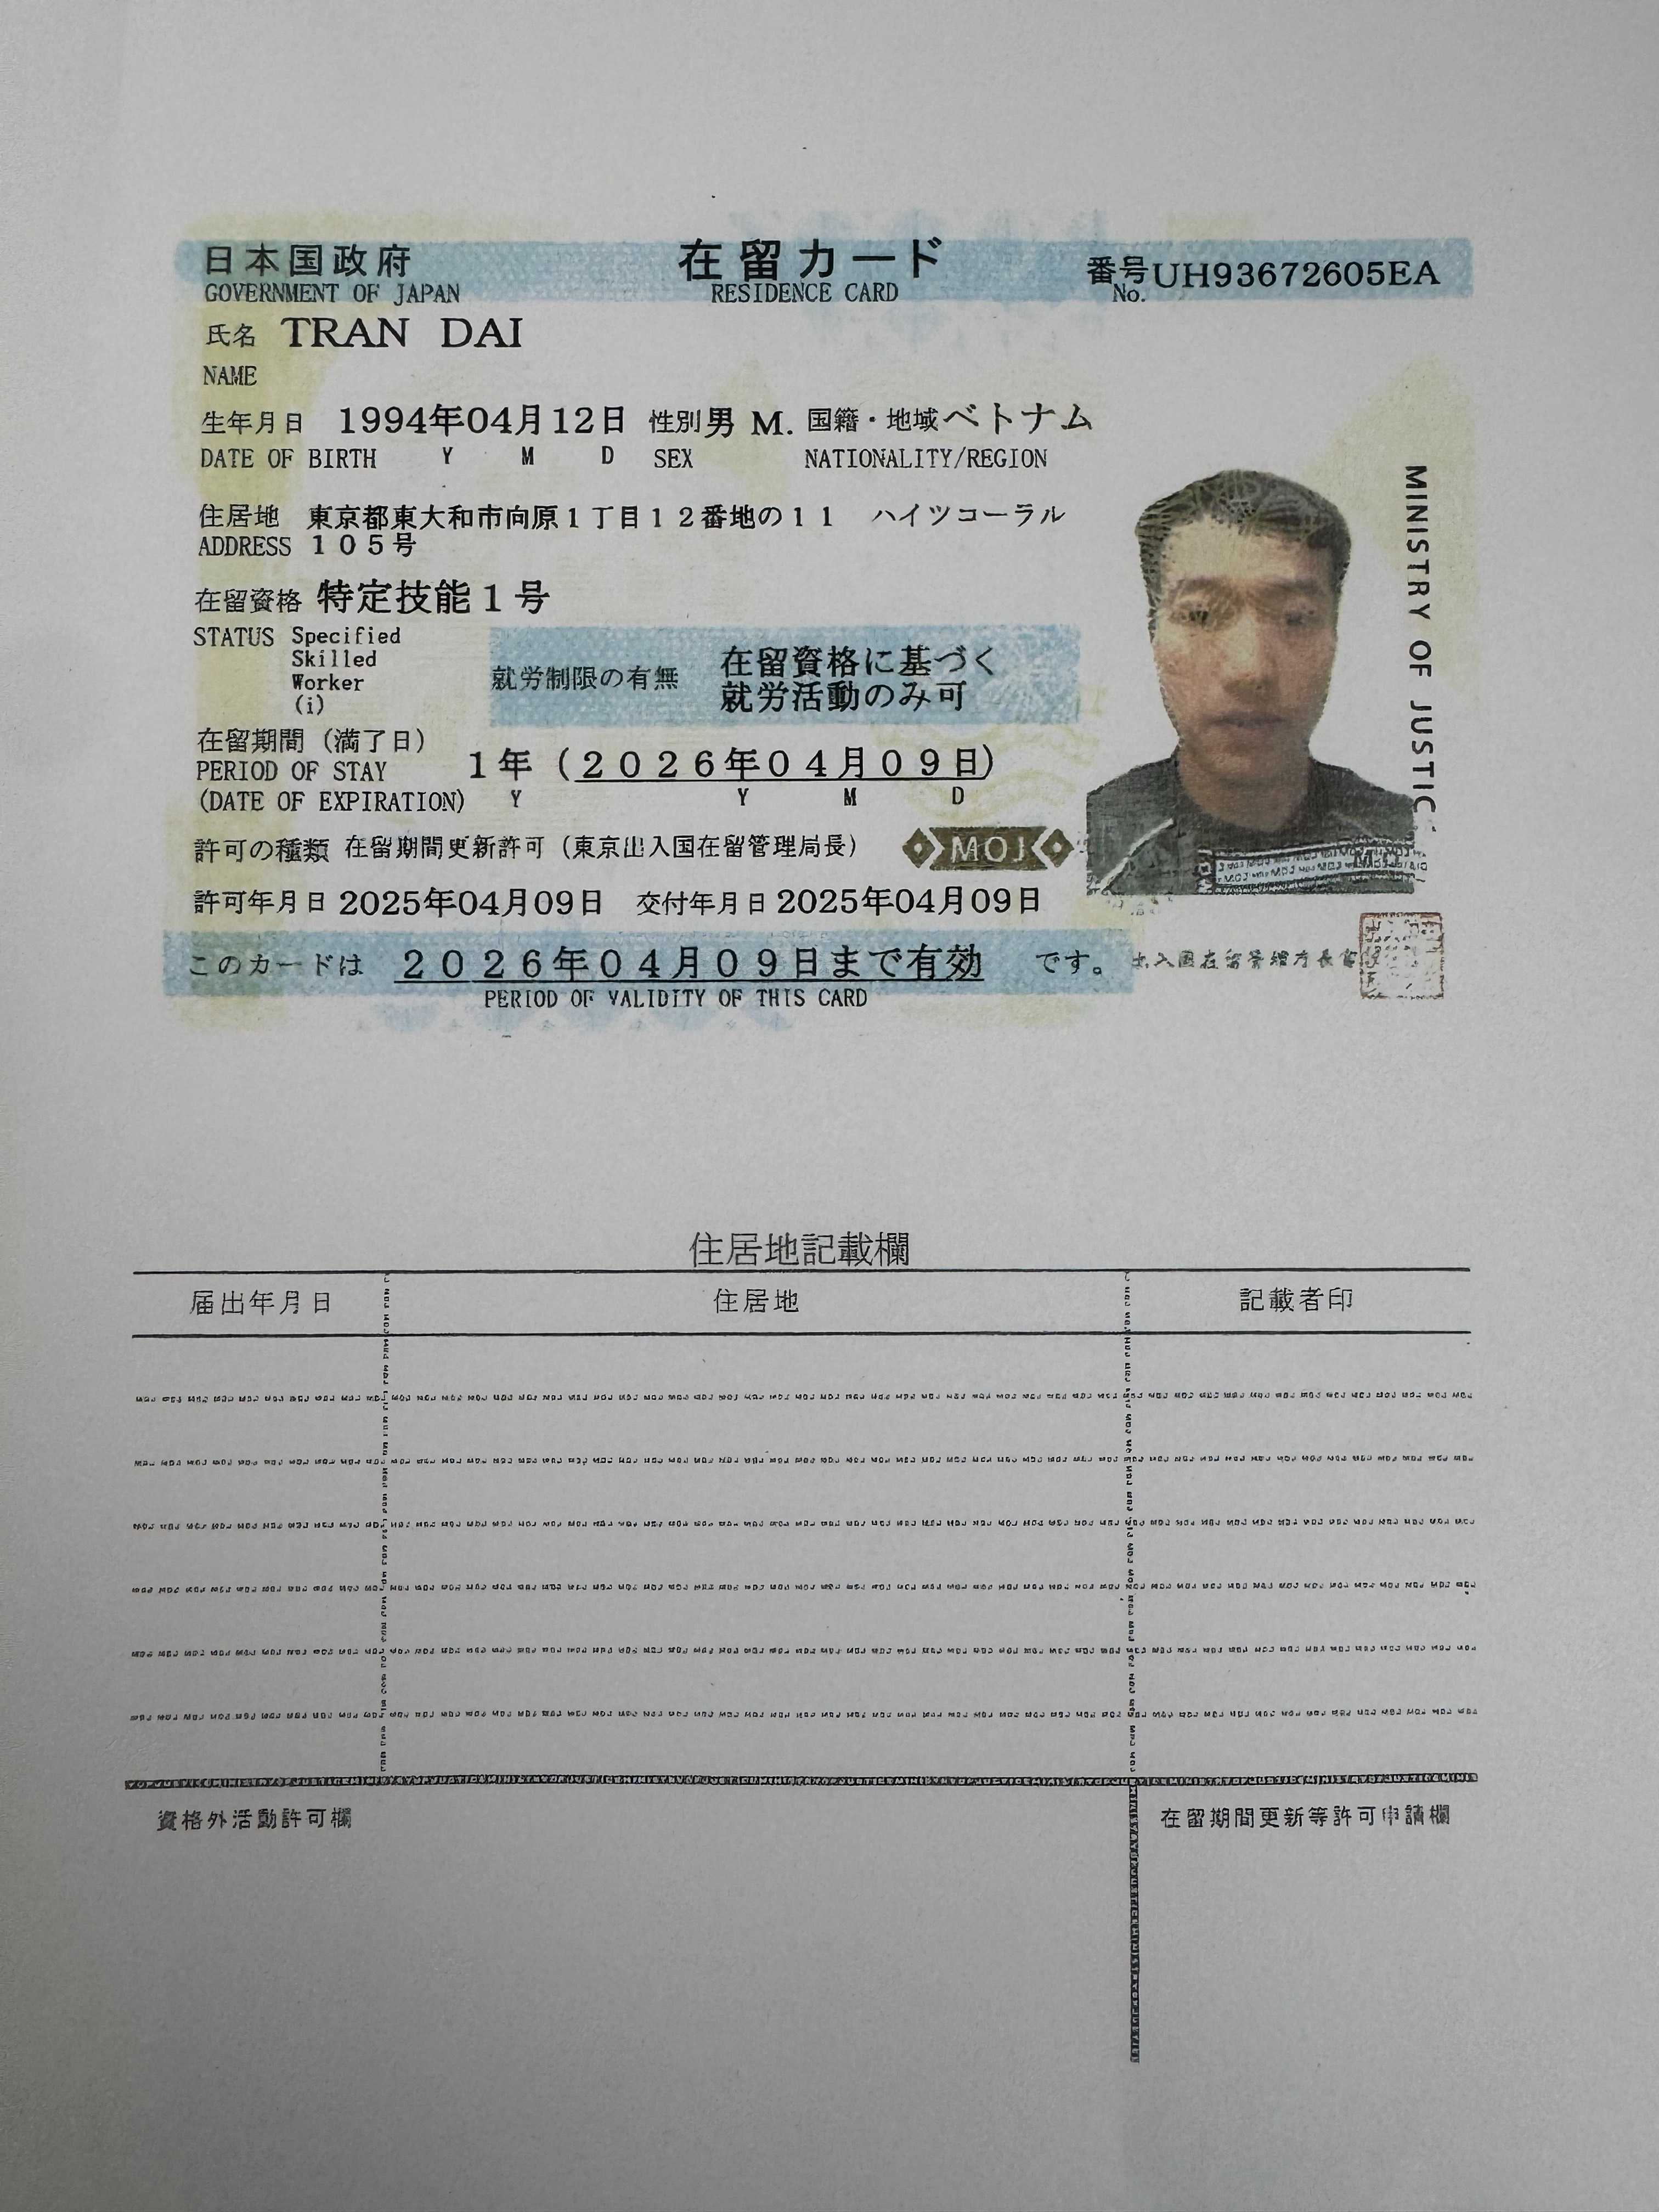 日本国政府 在留カード 番号UH93672605EA
GOVERNMENT OF JAPAN RESIDENCE CARD No.
氏名 TRAN DAI
NAME
生年月日 1994年04月12日 性別 男 M. 国籍・地域 ベトナム
DATE OF BIRTH Y M D SEX NATIONALITY/REGION
住居地 東京都東大和市向原1丁目12番地の11 ハイツコーラル
ADDRESS 105号
在留資格 特定技能1号
STATUS Specified
Skilled
Worker
(i)
就労制限の有無 在留資格に基づく
就労活動のみ可
在留期間(満了日)
PERIOD OF STAY 1年(2026年04月09日)
(DATE OF EXPIRATION) Y Y M D
許可の種類 在留期間更新許可(東京出入国在留管理局長) MOJ
許可年月日 2025年04月09日 交付年月日 2025年04月09日
このカードは 2026年04月09日まで有効 です。
PERIOD OF VALIDITY OF THIS CARD
出入国在留管理庁長官
MINISTRY OF JUSTIC
住居地記載欄
届出年月日 住居地 記載者印
資格外活動許可欄 在留期間更新等許可申請欄